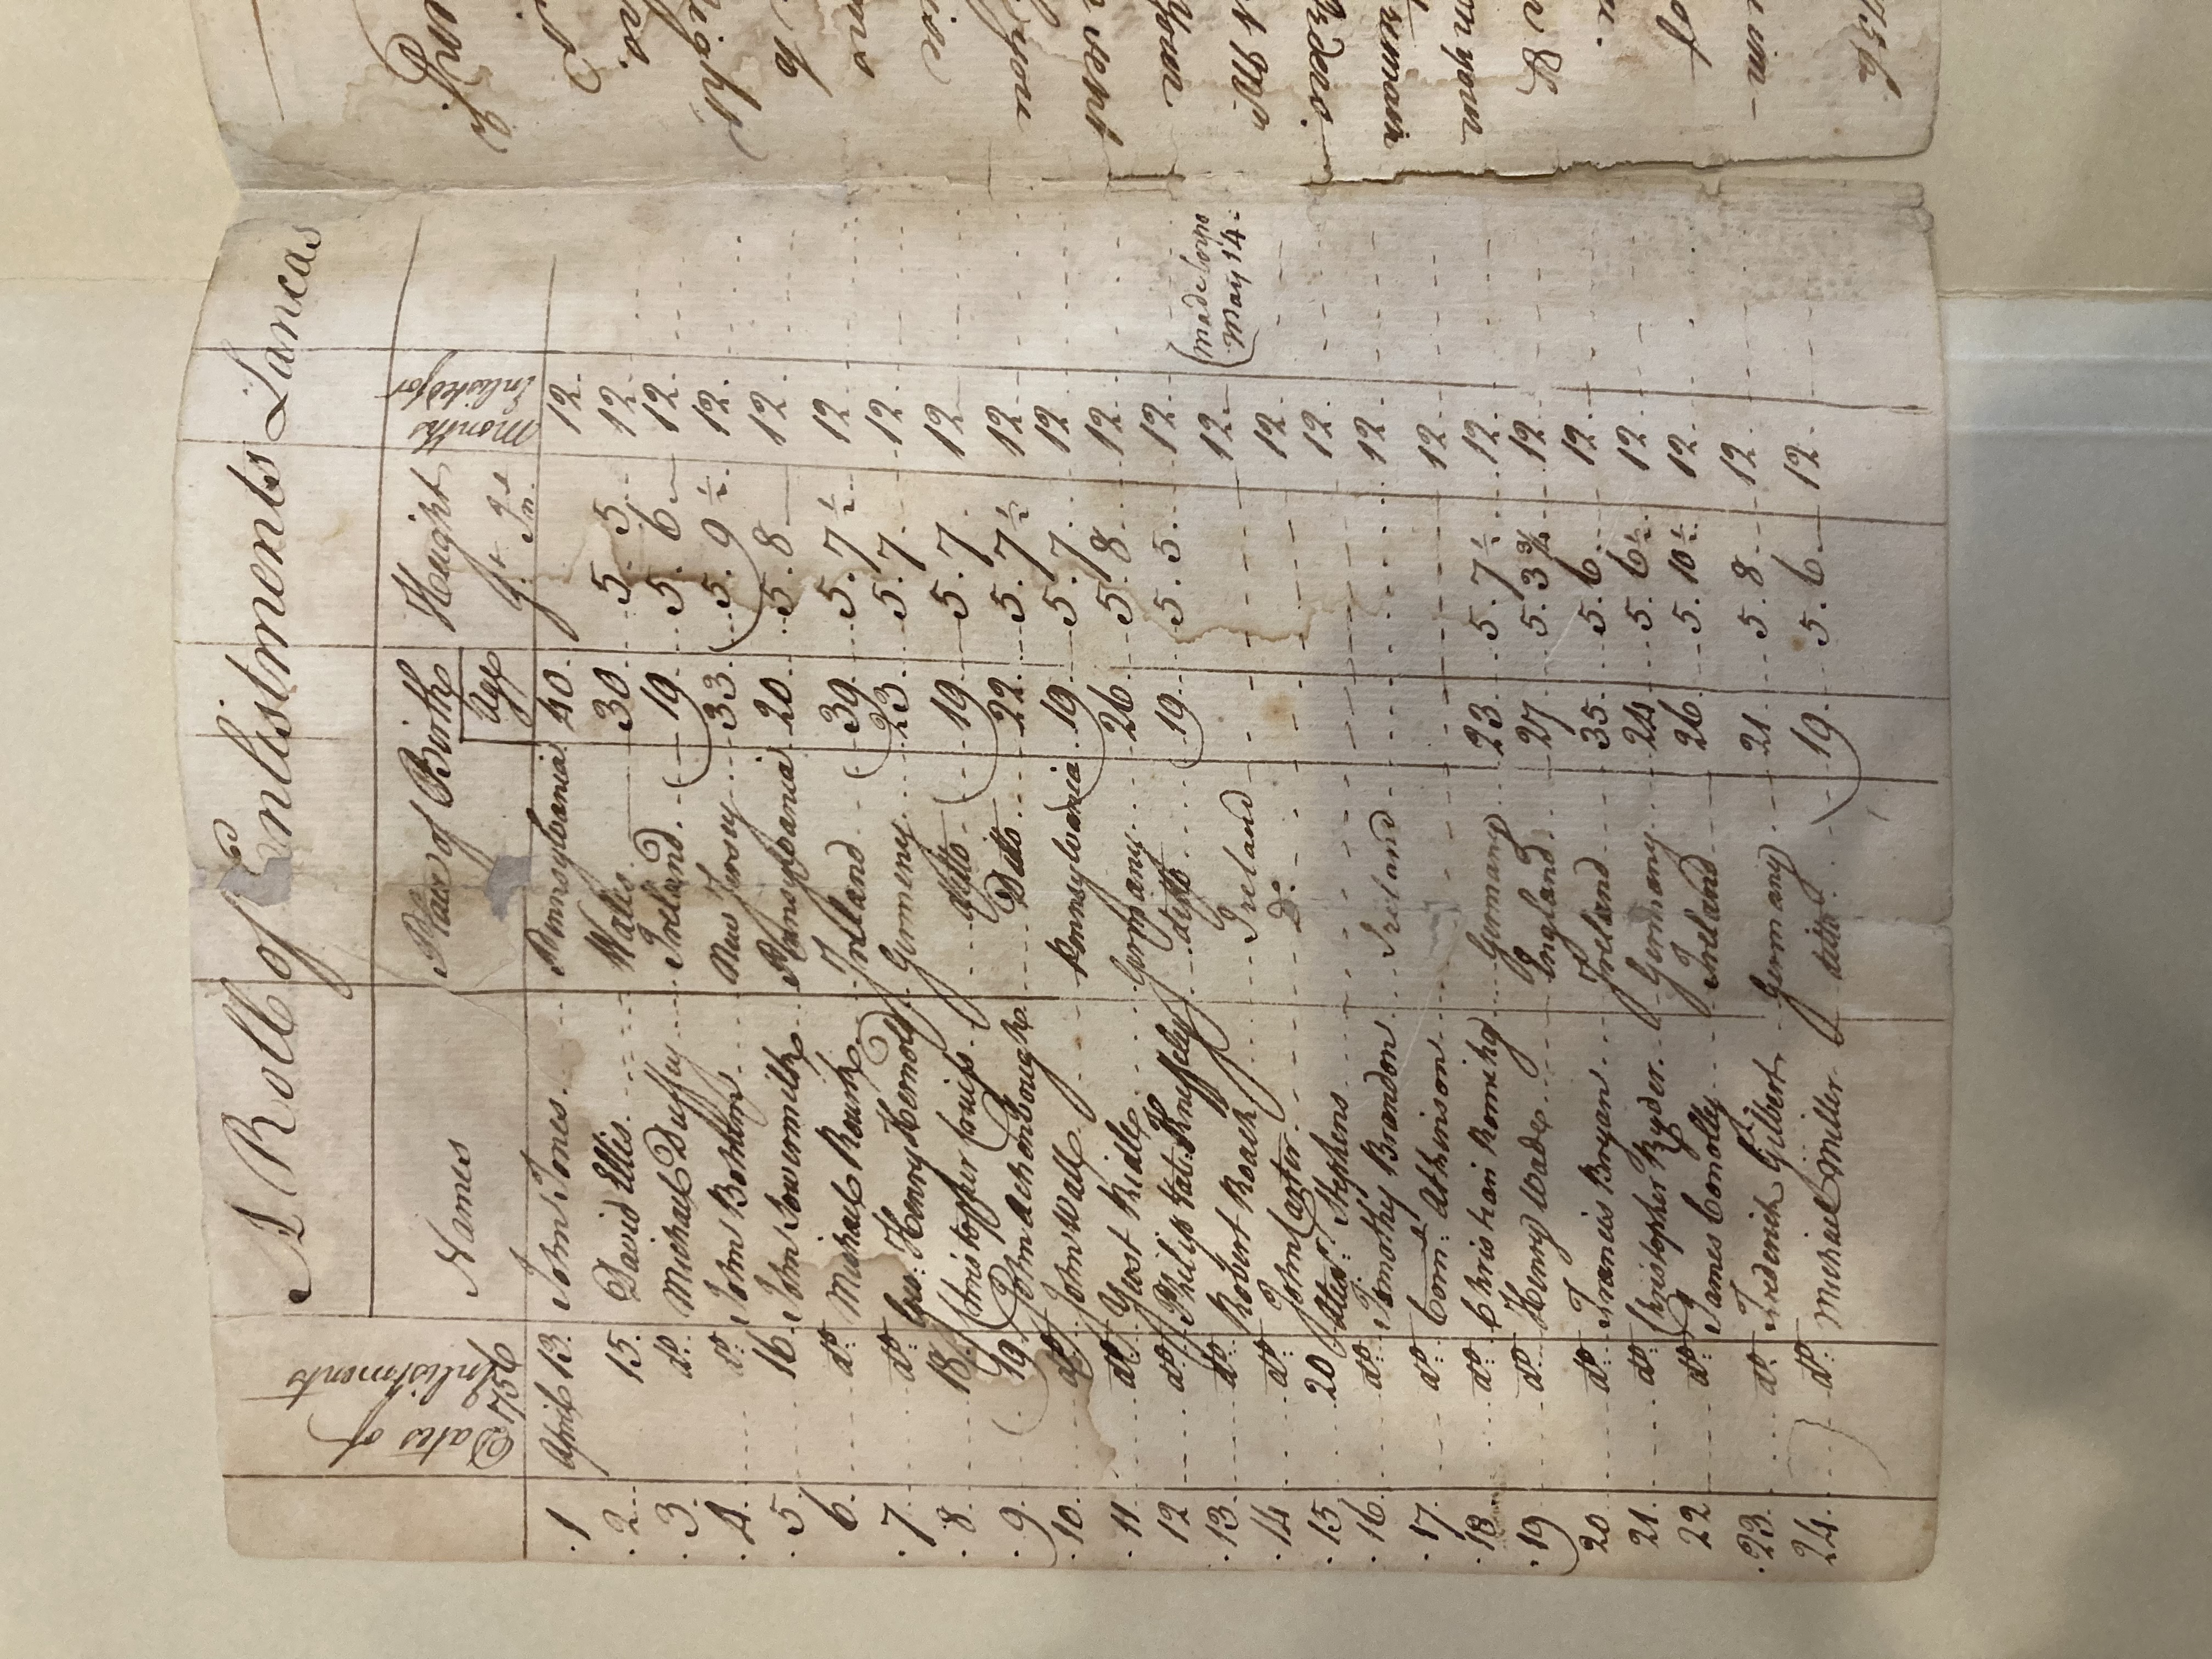 A Roll of Enlistments Lancas
Dates of Enlistments 1756
Names
Place of Birth
Age
Height
ft Ins
Months Enlisted for
1 April 13. John Jones. Pennsylvania 40. 12.
2 15. David Ellis. Wales 30 5 5 12
3. do. Michael Duffey Ireland. 19. 5. 6 12.
4. do. John New Jersey 33. 5. 9 ½ 12.
5. 16 John Sowermilk Pennsylvania 20 5. 8 12
6. do. Michael Rourk Ireland 39. 5. 7 ½ 12
7. do. Geo: Henry Hernold Germeny 23 5. 7 12
8. 18 Christopher ditto 19 5. 7 12
9. 19 John Achenbough Ditto 22 5. 7 ½ 12
10. do. John Wall Pennsylvania 19 5. 7 12
11. do. Yeost Ridle Germany 26 5. 8 12
12 do. Philip Kneffely ditto 19 5. 5 12
13. do. Robert Roach Ireland 12 made Corpo
May 14
14 do. John Carter Do. 12
15 20 Alexr. Stephens 12.
16 do. Timothy Brandon Ireland 12
17. do. Corns. Atkinson 12
18 do. Christian Romihg Germany 23 5. 7 ½ 12.
19 do. Henry Wade England 27 5. 3 ¾ 12
20 do. Francis Bryan Ireland 35. 5. 6 12.
21. do. Christopher Ryder. Germany 24 5. 6 ½ 12
22 do. James Conolly Ireland 26. 5. 10 ½ 12
23. do. Frederick Gilbert Germany 21 5. 8 12
24. do. Michael Miller ditto 19 5. 6 12